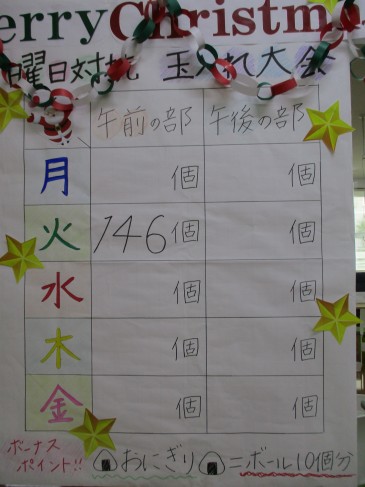 erryChristm
曜日対抗 玉入れ大会
午前の部 午後の部
月 個 個
火 146個 個
水 個 個
木 個 個
金 個 個
ボーナス
ポイント!! おにぎり = ボール10個分